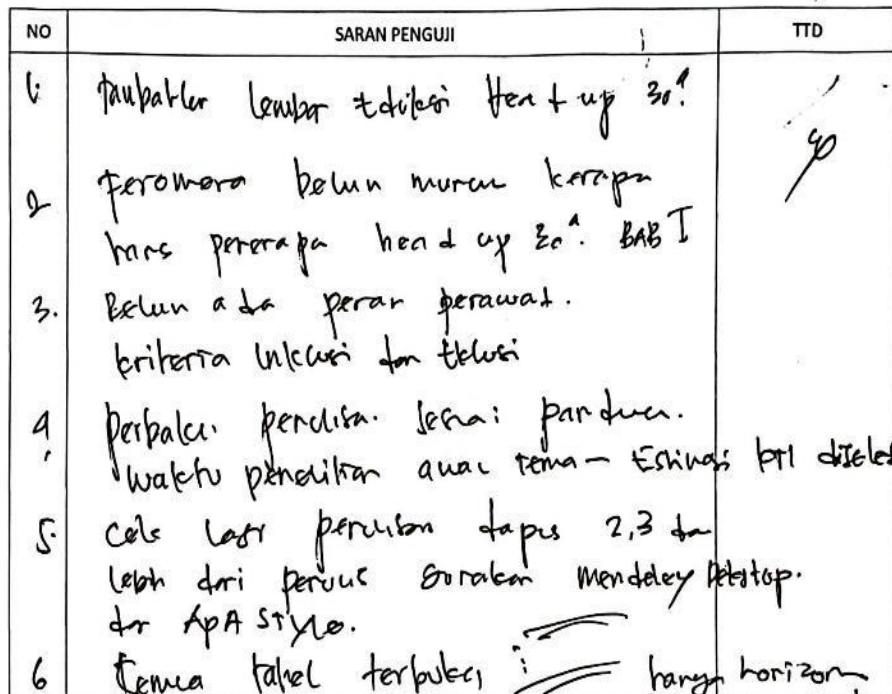 NO SARAN PENGUJI TTD
1. lembar Head up 30°
2 Fenomena belum muncul kenapa
harus penerapan head up 30°. BAB I
3. Belum ada peran perawat.
kriteria inklusi dan
4. Perbaiki penulisan. sesuai panduan.
waktu penelitian
5. Cek lagi penulisan dapus 2,3 dan
lebih dari penulis Gunakan Mendeley Dekstop.
dan APA Style.
6 Semua tabel terbuka, hanya horizon